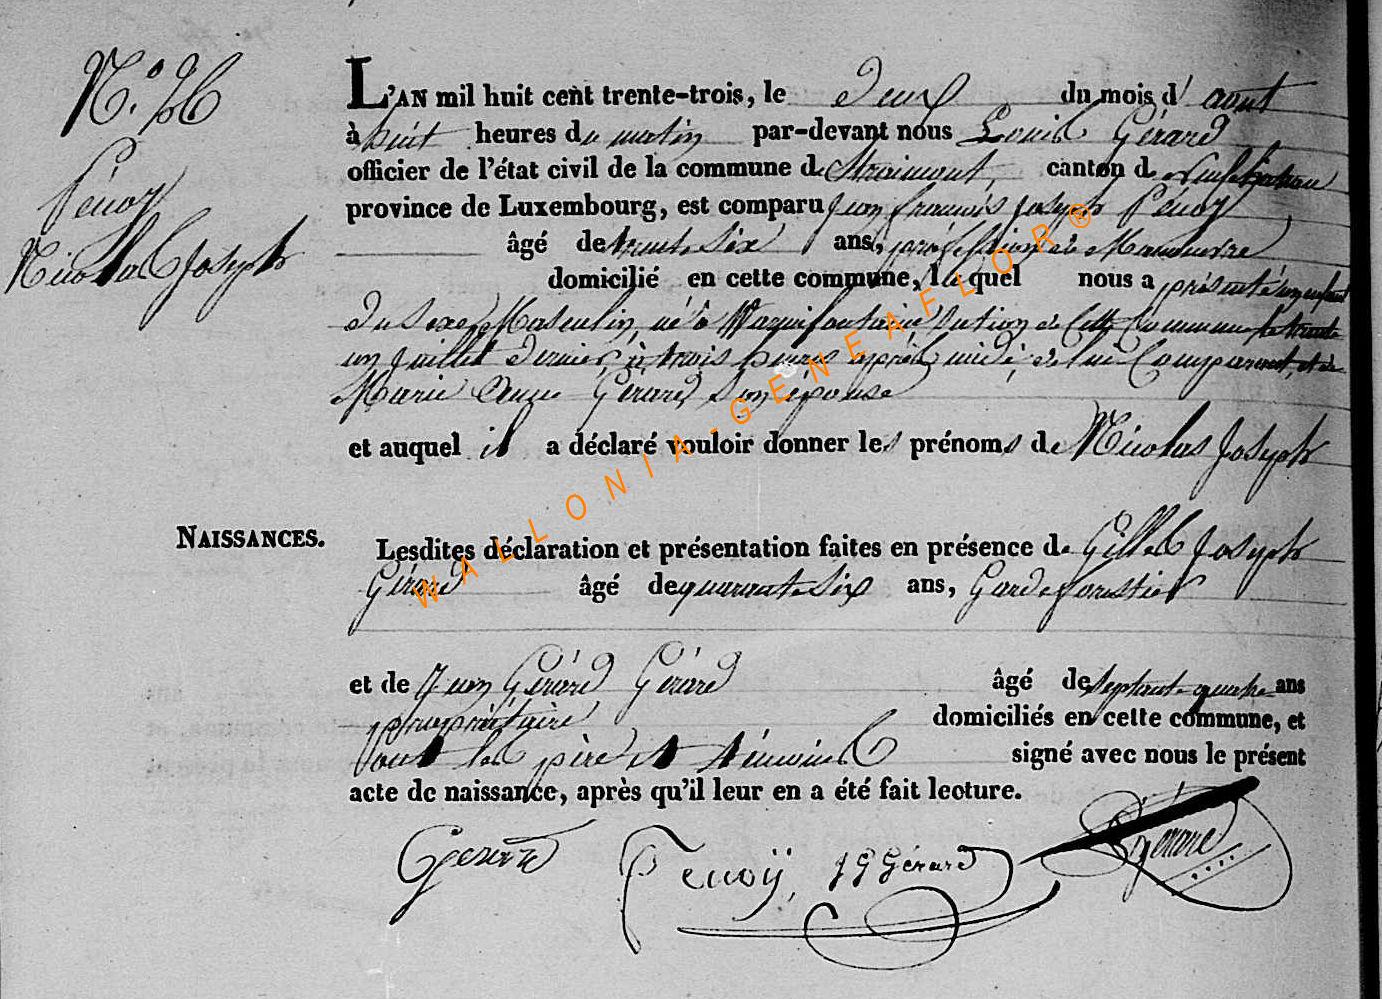 N.° 26
Penoy
Nicolas Joseph
L'AN mil huit cent trente-trois, le deux du mois d' aout
à huit heures du matin par-devant nous Louis Gérard
officier de l'état civil de la commune de Straimont, canton de Neufchateau
province de Luxembourg, est comparu Jean françois Joseph Penoy
âgé de trente six ans, profession de Manoeuvre
domicilié en cette commune, lequel nous a présenté un enfant
du sexe Masculin, né à Warmifontaine Section de Cette Commune le trente
un Juillet dernier, à trois heures après midi, de lui Comparant, et de
Marie Anne Gérard, son épouse
et auquel il a déclaré vouloir donner les prénoms de Nicolas Joseph
NAISSANCES.
Lesdites déclaration et présentation faites en présence de Gilles Joseph
Gérard âgé de quarante six ans, Garde forestier
et de Jean Gérard Gérard âgé de septante quatre ans
propriétaire domiciliés en cette commune, et
ont les père et témoins signé avec nous le présent
acte de naissance, après qu'il leur en a été fait lecture.
Gerard Penoÿ, JG Gérard Gérard
WALLONIA-GENEAFLOR®